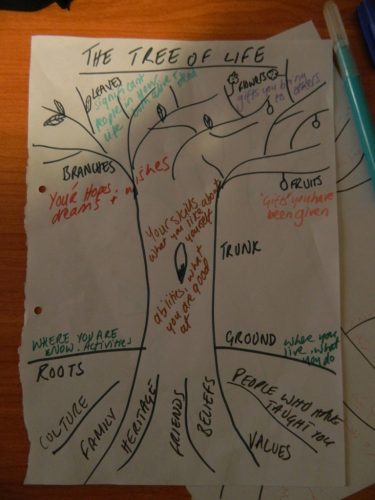 THE TREE OF LIFE
LEAVES
significant
people in your
life
both alive + dead
FLOWERS
gifts you bring
to others
BRANCHES
Your Hopes,
dreams + wishes
FRUITS
'Gifts' you have
been given
Your skills
what you like about
yourself
abilities, what
you are good
at
TRUNK
WHERE YOU ARE
NOW. Activities
GROUND
where you
live, what
you do
ROOTS
CULTURE
FAMILY
HERITAGE
FRIENDS
BELIEFS
PEOPLE WHO HAVE
TAUGHT YOU
VALUES